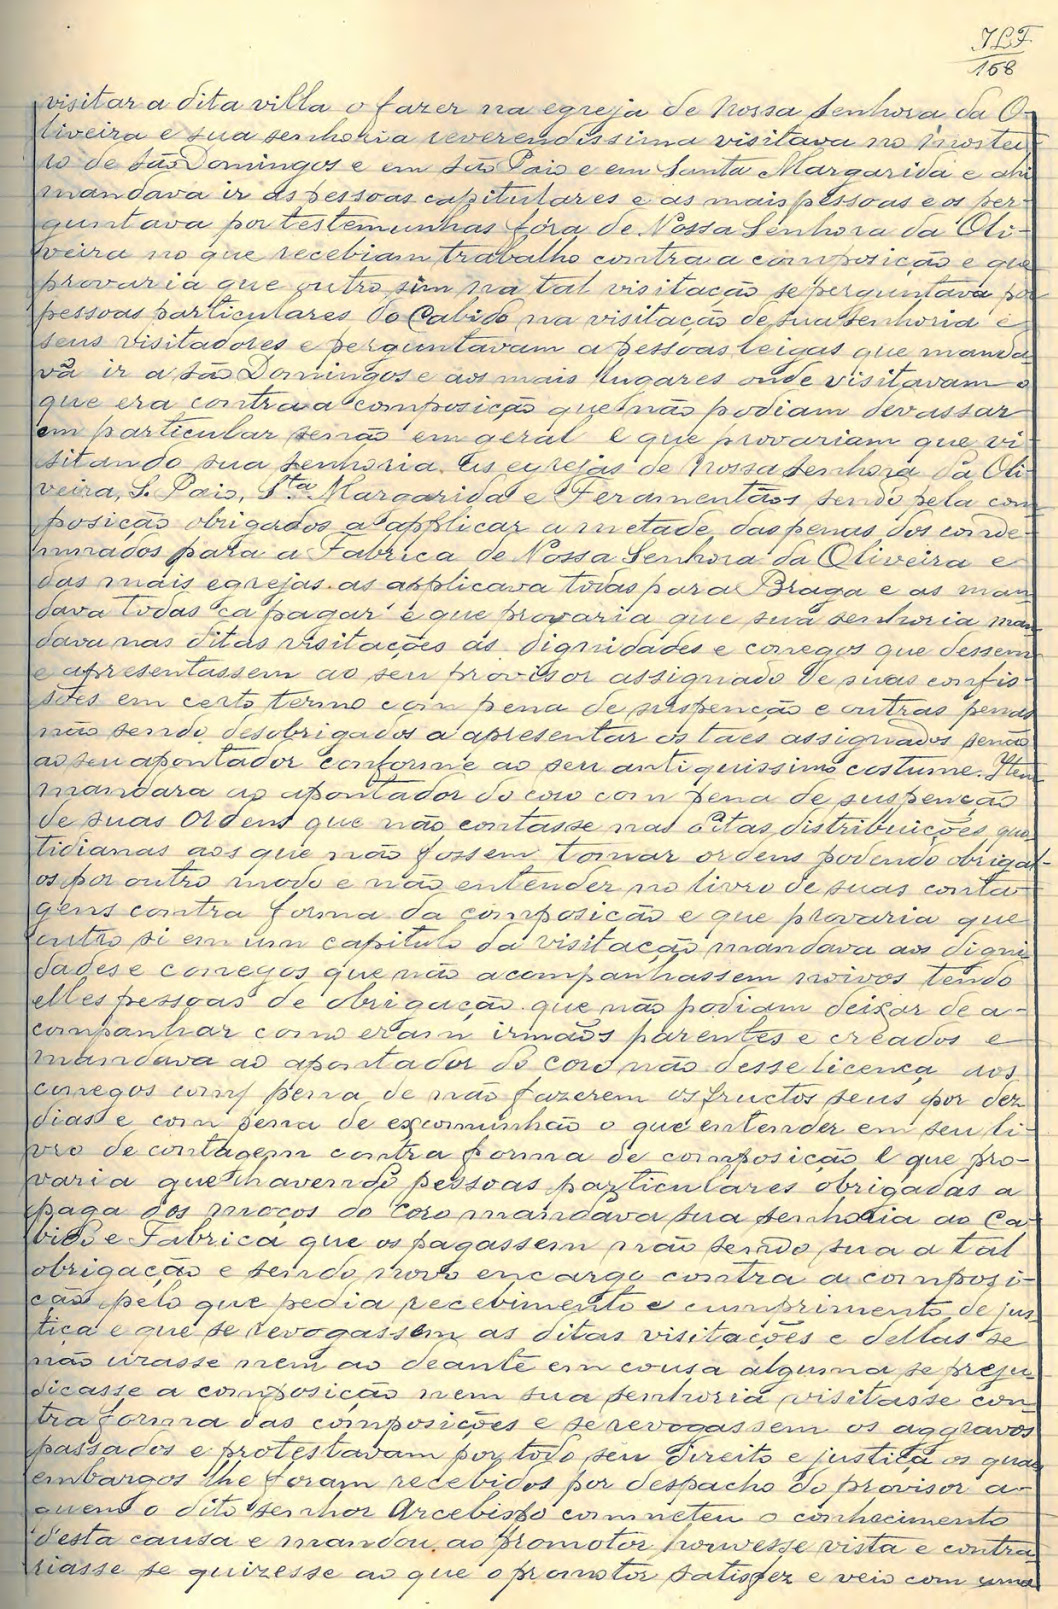 JLF
158
visitar a dita villa o fazer na egreja de Nossa Senhora da O-
liveira e sua senhoria reverendissima visitava no Mostei-
ro de São Domingos e em São Paio e em Santa Margarida e ahi
mandava ir as pessoas capitulares e as mais pessoas e os per-
guntava por testemunhas fóra de Nossa Senhora da Oli-
veira no que recebiam trabalho contra a composição e que
provaria que outro sim na tal visitação se perguntava por
pessoas particulares do Cabido na visitação de sua senhoria e
seus visitadores e perguntavam a pessoas leigas que manda-
vã ir a São Domingos e aos mais lugares onde visitavam o
que era contra a composição que não podiam devassar
em particular senão em geral e que provariam que vi-
sitando sua senhoria as egrejas de Nossa Senhora da Oli-
veira, S. Paio, Sta Margarida e Feramentãos sendo pela com-
posição obrigados a applicar a metade das penas dos conde-
mnados para a Fabrica de Nossa Senhora da Oliveira e
das mais egrejas as applicava todas para Braga e as man-
dava todas ca pagar e que provaria que sua senhoria man-
dava nas ditas visitações ás dignidades e conegos que dessem
e apresentassem ao seu provisor assignado de suas confis-
sões em certo termo com pena de suspenção e outras penas
não sendo desobrigados a apresentar os taes assignados senão
ao seu apontador conforme ao seu antiquissimo costume. Item
mandara ao apontador do coro com pena de suspenção
de suas Ordens que não contasse nas ditas distribuições quo-
tidianas aos que não fossem tomar ordens podendo obrigal-
os por outro modo e não entender no livro de suas conta-
gens contra forma da composição e que provaria que
outro si em um capitulo da visitação mandava aos digni-
dades e conegos que não acompanhassem noivos tendo
elles pessoas de obrigação que não podiam deixar de a-
companhar como eram irmãos parentes e creados e
mandava ao apontador do coro não desse licença aos
conegos com pena de não fazerem os fructos seus por dez
dias e com pena de excomunhão o que entender em seu li-
vro de contagem contra forma de composição e que pro-
varia que havendo pessoas particulares obrigadas a
paga dos moços do coro mandava sua senhoria ao Ca-
bido e Fabrica que os pagassem não sendo sua a tal
obrigação e sendo novo encargo contra a composi-
ção pelo que pedia recebimento e cumprimento de jus-
tiça e que se revogassem as ditas visitações e dellas se
não usasse nem ao deante em cousa alguma se preju-
dicasse a composição nem sua senhoria visitasse con-
tra forma das composições e se revogassem os aggravos
passados e protestavam por todo seu direito e justiça os quaes
embargos lhe foram recebidos por despacho do provisor a-
quem o dito senhor Arcebispo commeteu o conhecimento
d'esta causa e mandou ao promotor houvesse vista e contra-
riasse se quizesse ao que o promotor satisfez e veio com uma